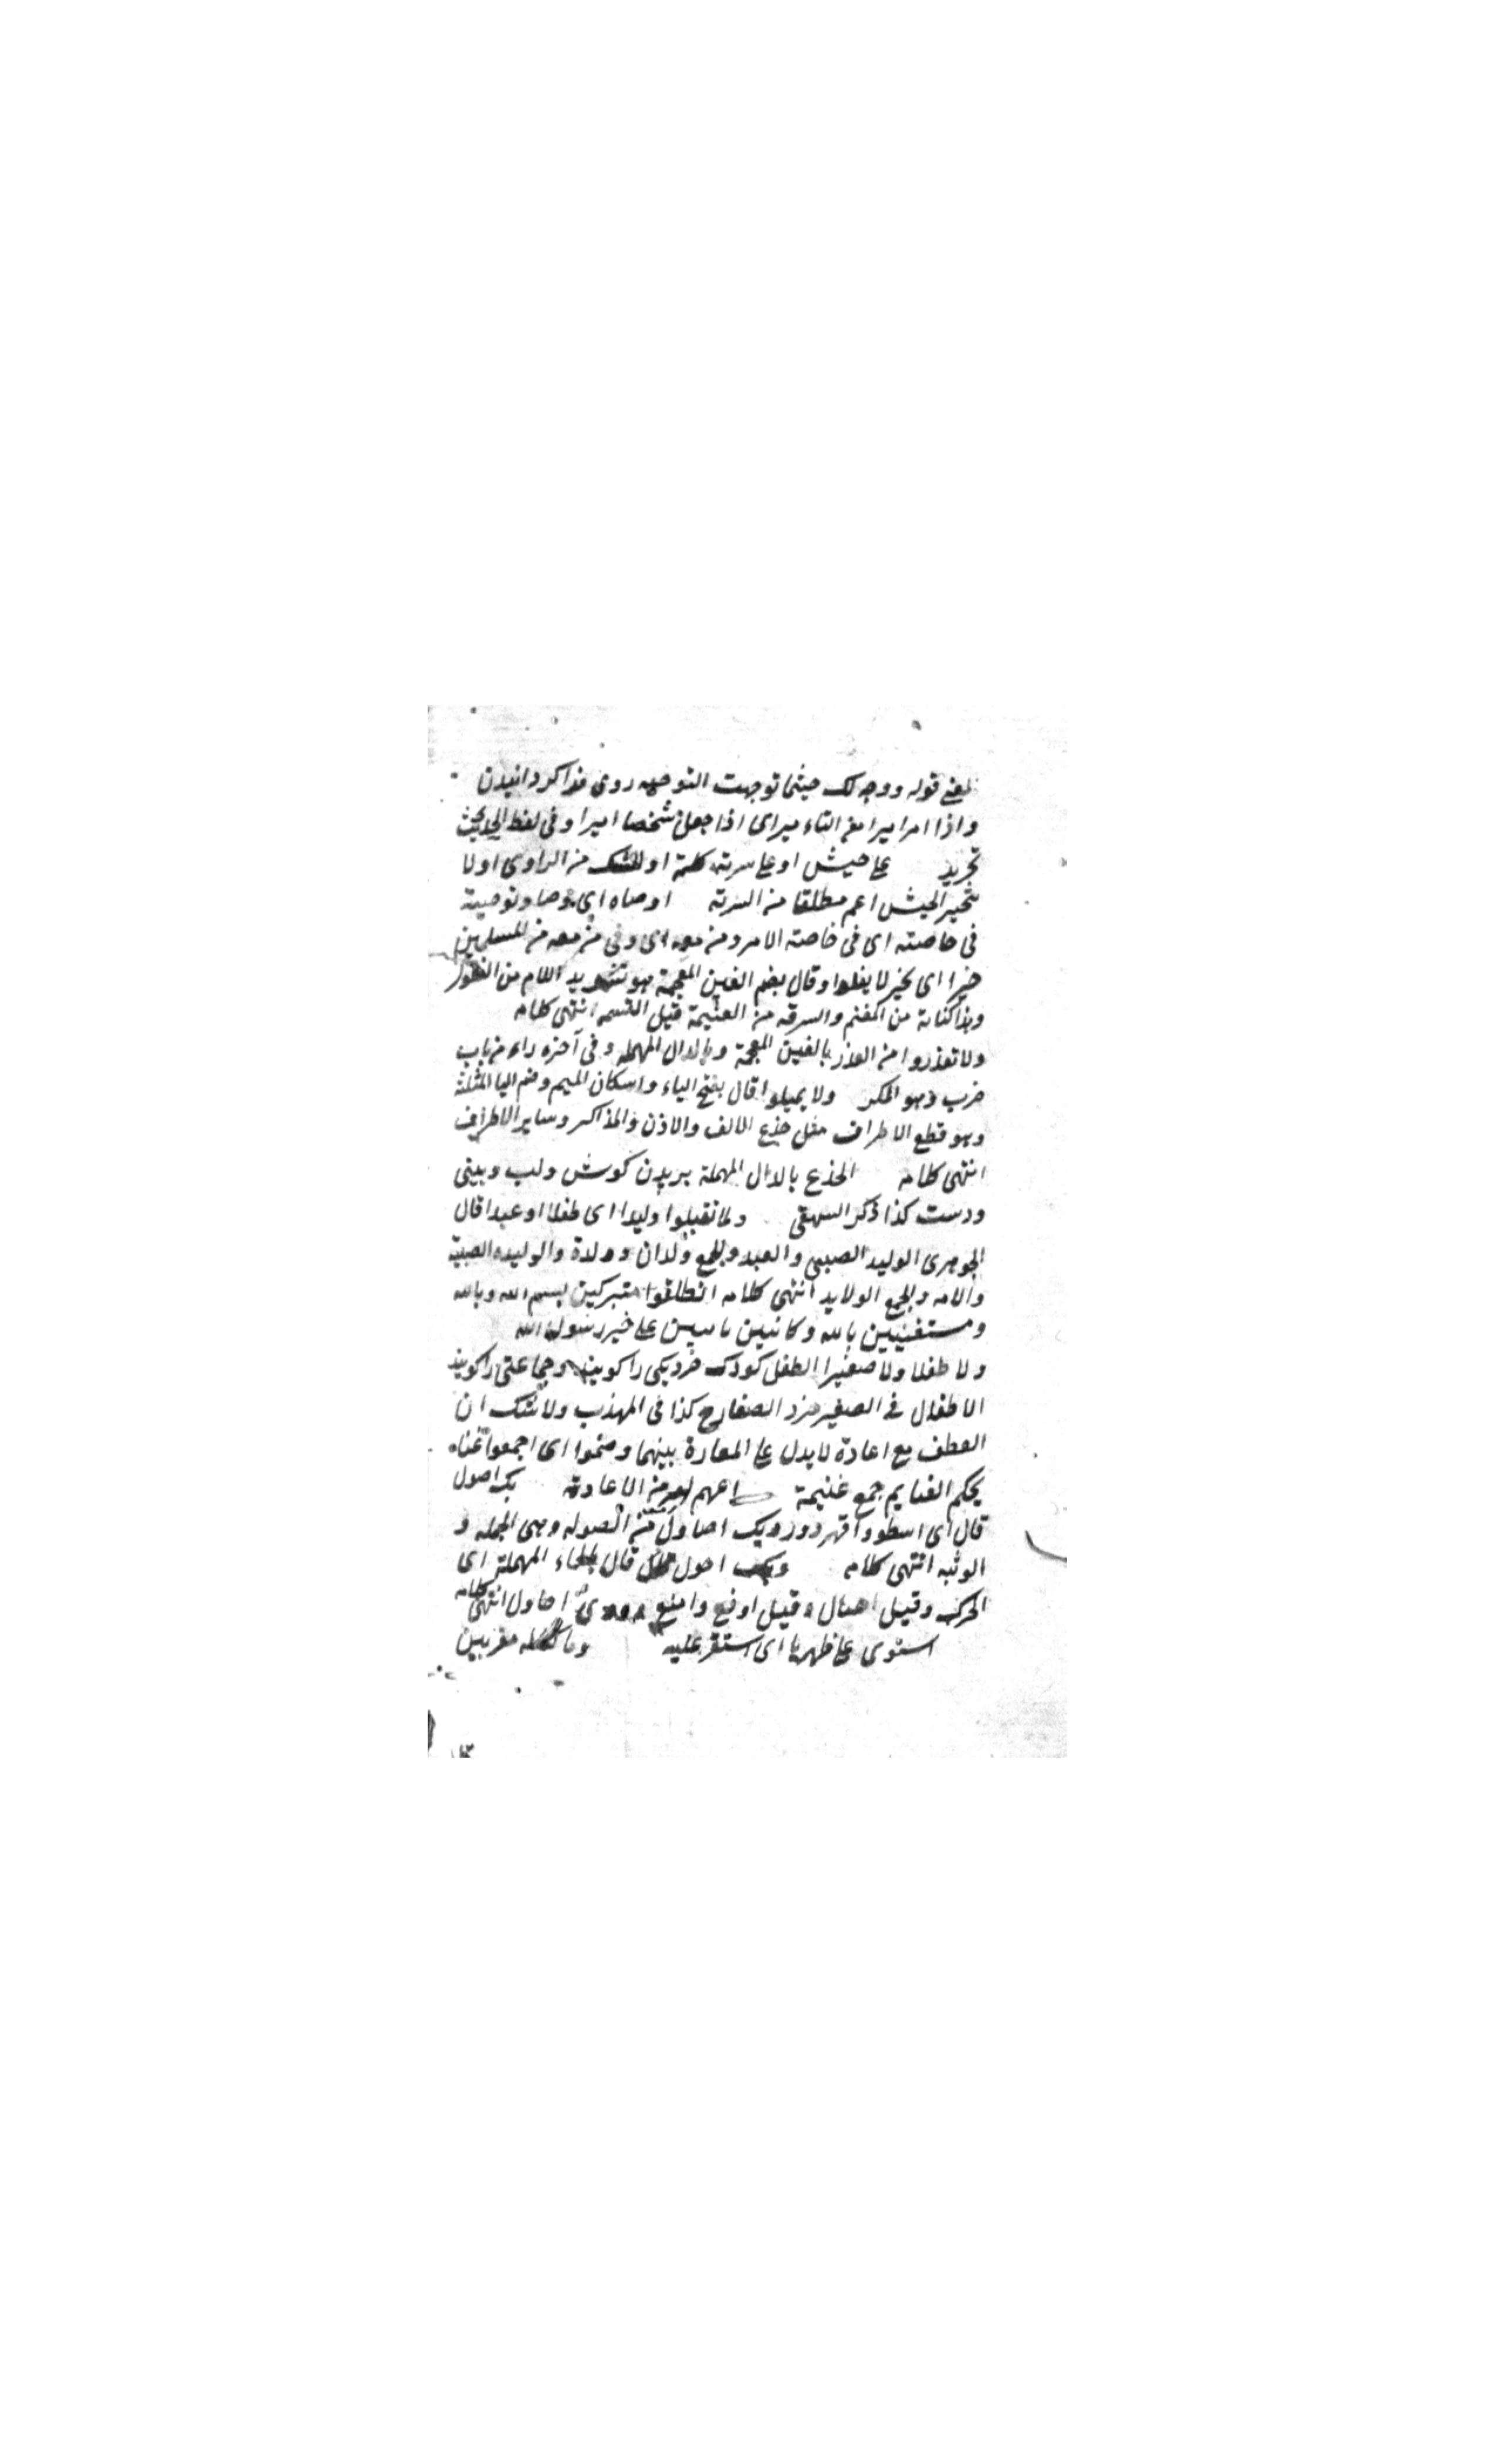 قوله ووجه لك حيثما توجهت التوجيه روى فرا كردانيدن
واذا امر اميرا التاء ميراى اذا جعل شخصا اميرا وفى لفظ الحديث
تجريد على جيش او على سرته كلمة او للشك من الراوى اولا
الجيش اعم مطلقا من السرته اوصاه اى وصا وتوصية
فى خاصته اى فى خاصته الامر ومن معه اى وفى من معه من المسلمين
خيرا اى بخير لا يغلوا وقال بضم الغين المعجمة وتشديد اللام من الغلول
وهذا كناية من المغنم والسرقه من الغنيمة قبل القسمه انتهى كلامه
ولا تغدروا من الغدر بالغين المعجمة وبالدال المهمله وفى آخره راء من باب
ضرب وهو المكر ولا يميلوا قال بفتح الياء واسكان الميم وضم اليا المثلثة
وهو قطع الاطراف مثل جذع الالف والاذن والمذاكر وساير الاطراف
انتهى كلامه الجذع بالدال المهملة بريدن كوش ولب وبينى
ودست كذا ذكر السهقى ولا تقتلوا وليدا اى طفلا او عبدا قال
الجوهرى الوليد الصبى والعبد والجمع ولدان وولدة والوليده الصبية
والامه والجمع الولايد انتهى كلامه انطلقوا متبركين بسم الله وبالله
ومستغنيين بالله وكانيين على خير رسول الله
ولا طفلا ولا صغيرا الطفل كودك خرد يكى را كويند وجماعتى را كويند
الاطفال فى الصغير خرد الصغار ح كذا فى المهذب ولا شك ان
العطف مع اعادة لا يدل على المعارة بينهما وضموا اى اجمعوا غنا
يحكم الغنايم جمع غنيمة اعهم من الاعادة بك اصول
قال اى اسطو واقهر دور وبك اصاول من الصوله وهى الجمله و
الوثبه انتهى كلامه وبك احول قال بالحاء المهملة اى
الحرك وقيل احتال وقيل اوفع وامنع اصاول انتهى كلامه
استوى على ظهرها اى استقر عليه وما كنا له مقرنين